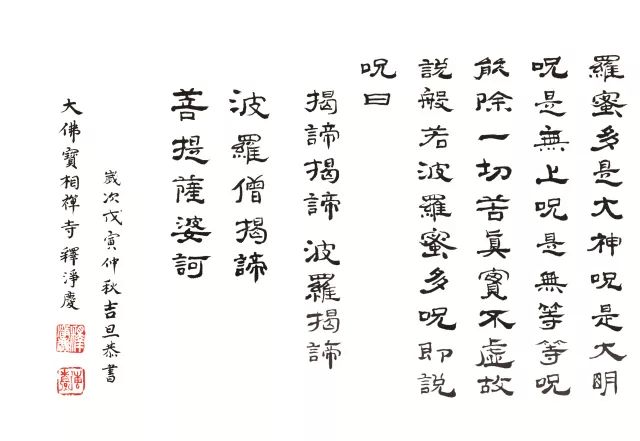 羅蜜多是大神呪是大明
呪是無上呪是無等等呪
能除一切苦真實不虛故
說般若波羅蜜多呪即說
呪曰
揭諦揭諦 波羅揭諦
波羅僧揭諦
菩提薩婆訶
歲次戊寅仲秋吉旦恭書
大佛寶相禪寺釋淨慶